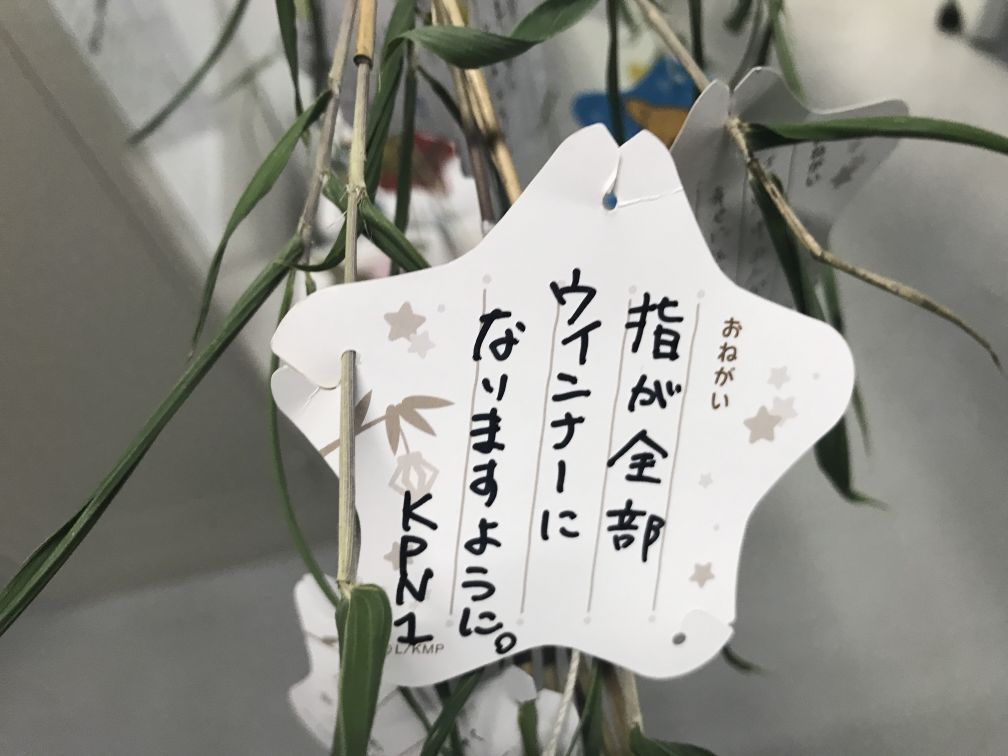 おねがい
指が全部
ウインナーに
なりますように。
KPN1
L/KMP